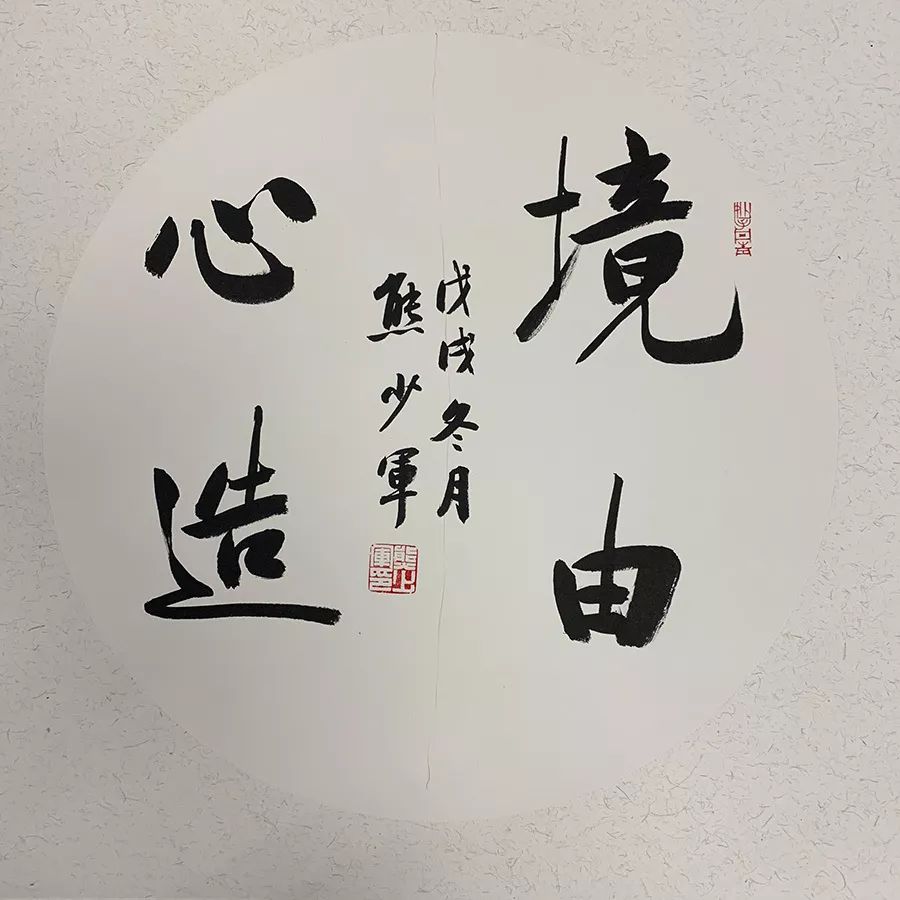 境由
心造
戊戌冬月
熊少軍
熊少軍印